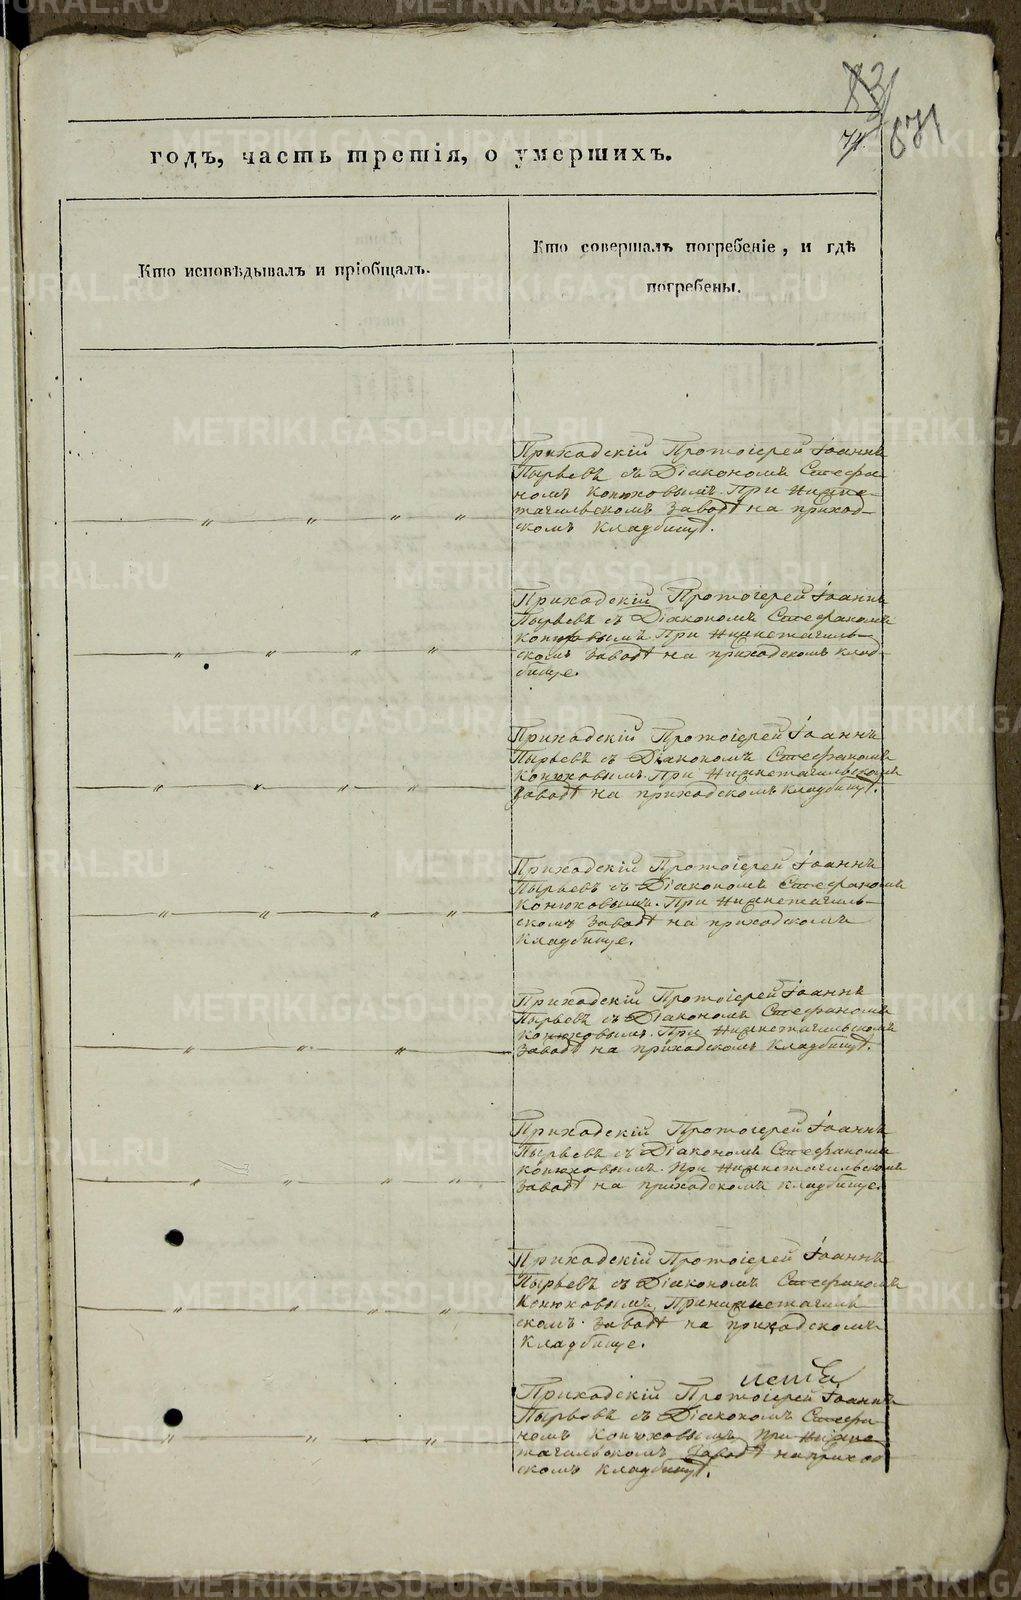 83
74. 671
годъ, часть третія, о умершихъ.
Кто исповѣдывалъ и пріобщалъ.
Кто совершалъ погребеніе, и гдѣ
погребены.
Приходскій Протоіерей Іоаннъ
Пырьевъ съ Діакономъ Стефа-
номъ Конюховымъ. При Нижне-
тагильскомъ заводѣ на приход-
скомъ кладбищѣ.
Приходскій Протоіерей Іоаннъ
Пырьевъ съ Діакономъ Стефаномъ
Конюховымъ. При Нижнетагиль-
скомъ заводѣ на приходскомъ клад-
бище.
Приходскій Протоіерей Іоаннъ
Пырьевъ съ Діакономъ Стефаномъ
Конюховымъ. При Нижнетагильскомъ
заводѣ на приходскомъ кладбищѣ.
Приходскій Протоіерей Іоаннъ
Пырьевъ съ Діакономъ Стефаномъ
Конюховымъ. При Нижнетагиль-
скомъ заводѣ на приходскомъ
кладбище.
Приходскій Протоіерей Іоаннъ
Пырьевъ съ Діакономъ Стефаномъ
Конюховымъ. При Нижнетагильскомъ
заводѣ на приходскомъ кладбищѣ.
Приходскій Протоіерей Іоаннъ
Пырьевъ съ Діакономъ Стефаномъ
Конюховымъ. При Нижнетагильскомъ
заводѣ на приходскомъ кладбище.
Приходскій Протоіерей Іоаннъ
Пырьевъ съ Діакономъ Стефаномъ
Конюховымъ. При Нижнетагиль
скомъ заводѣ на приходскомъ
кладбище.
Приходскій Протоіерей Іоаннъ
Пырьевъ съ Діакономъ Стефа
номъ Конюховымъ при Нижне
тагильскомъ заводѣ на приход
скомъ кладбищѣ.
METRIKI.GASO-URAL.RU